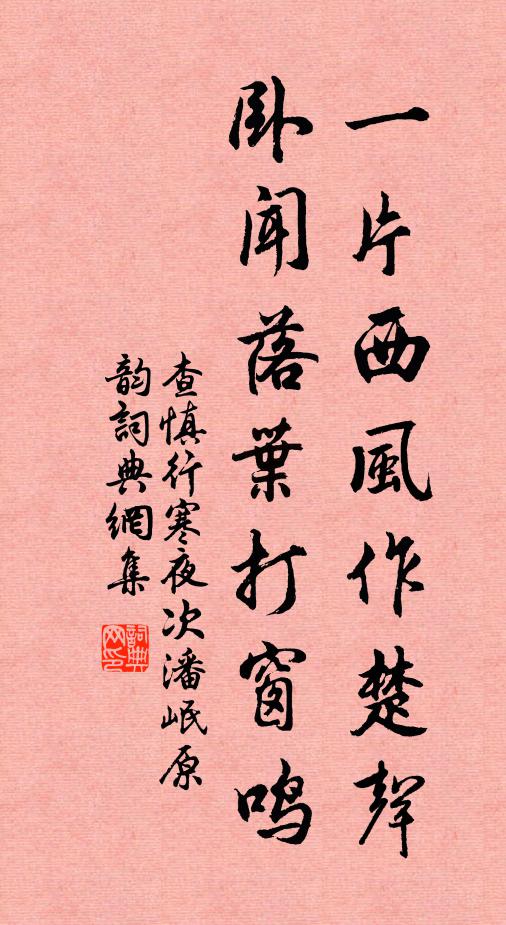 一片西風作楚聲
卧聞落葉打窗鸣
查慎行寒夜次潘岷原
韵詞典網集
詞典網印